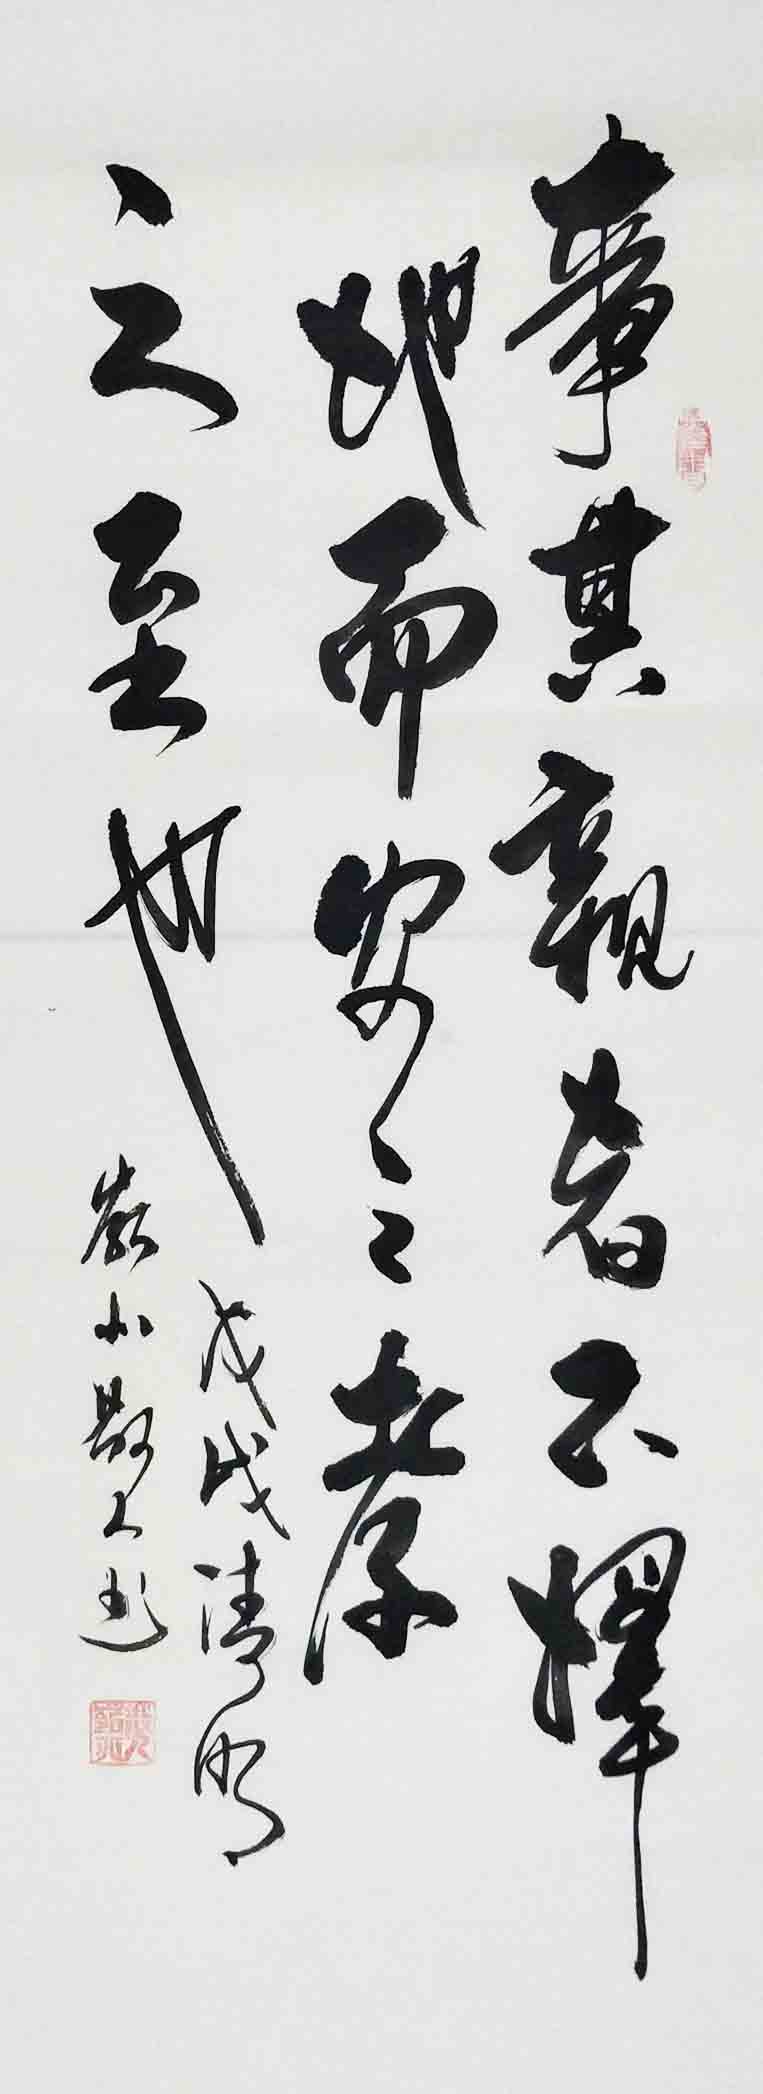 事其親者不擇
地而安之孝
之至也
戊戌清明
嚴小散人書